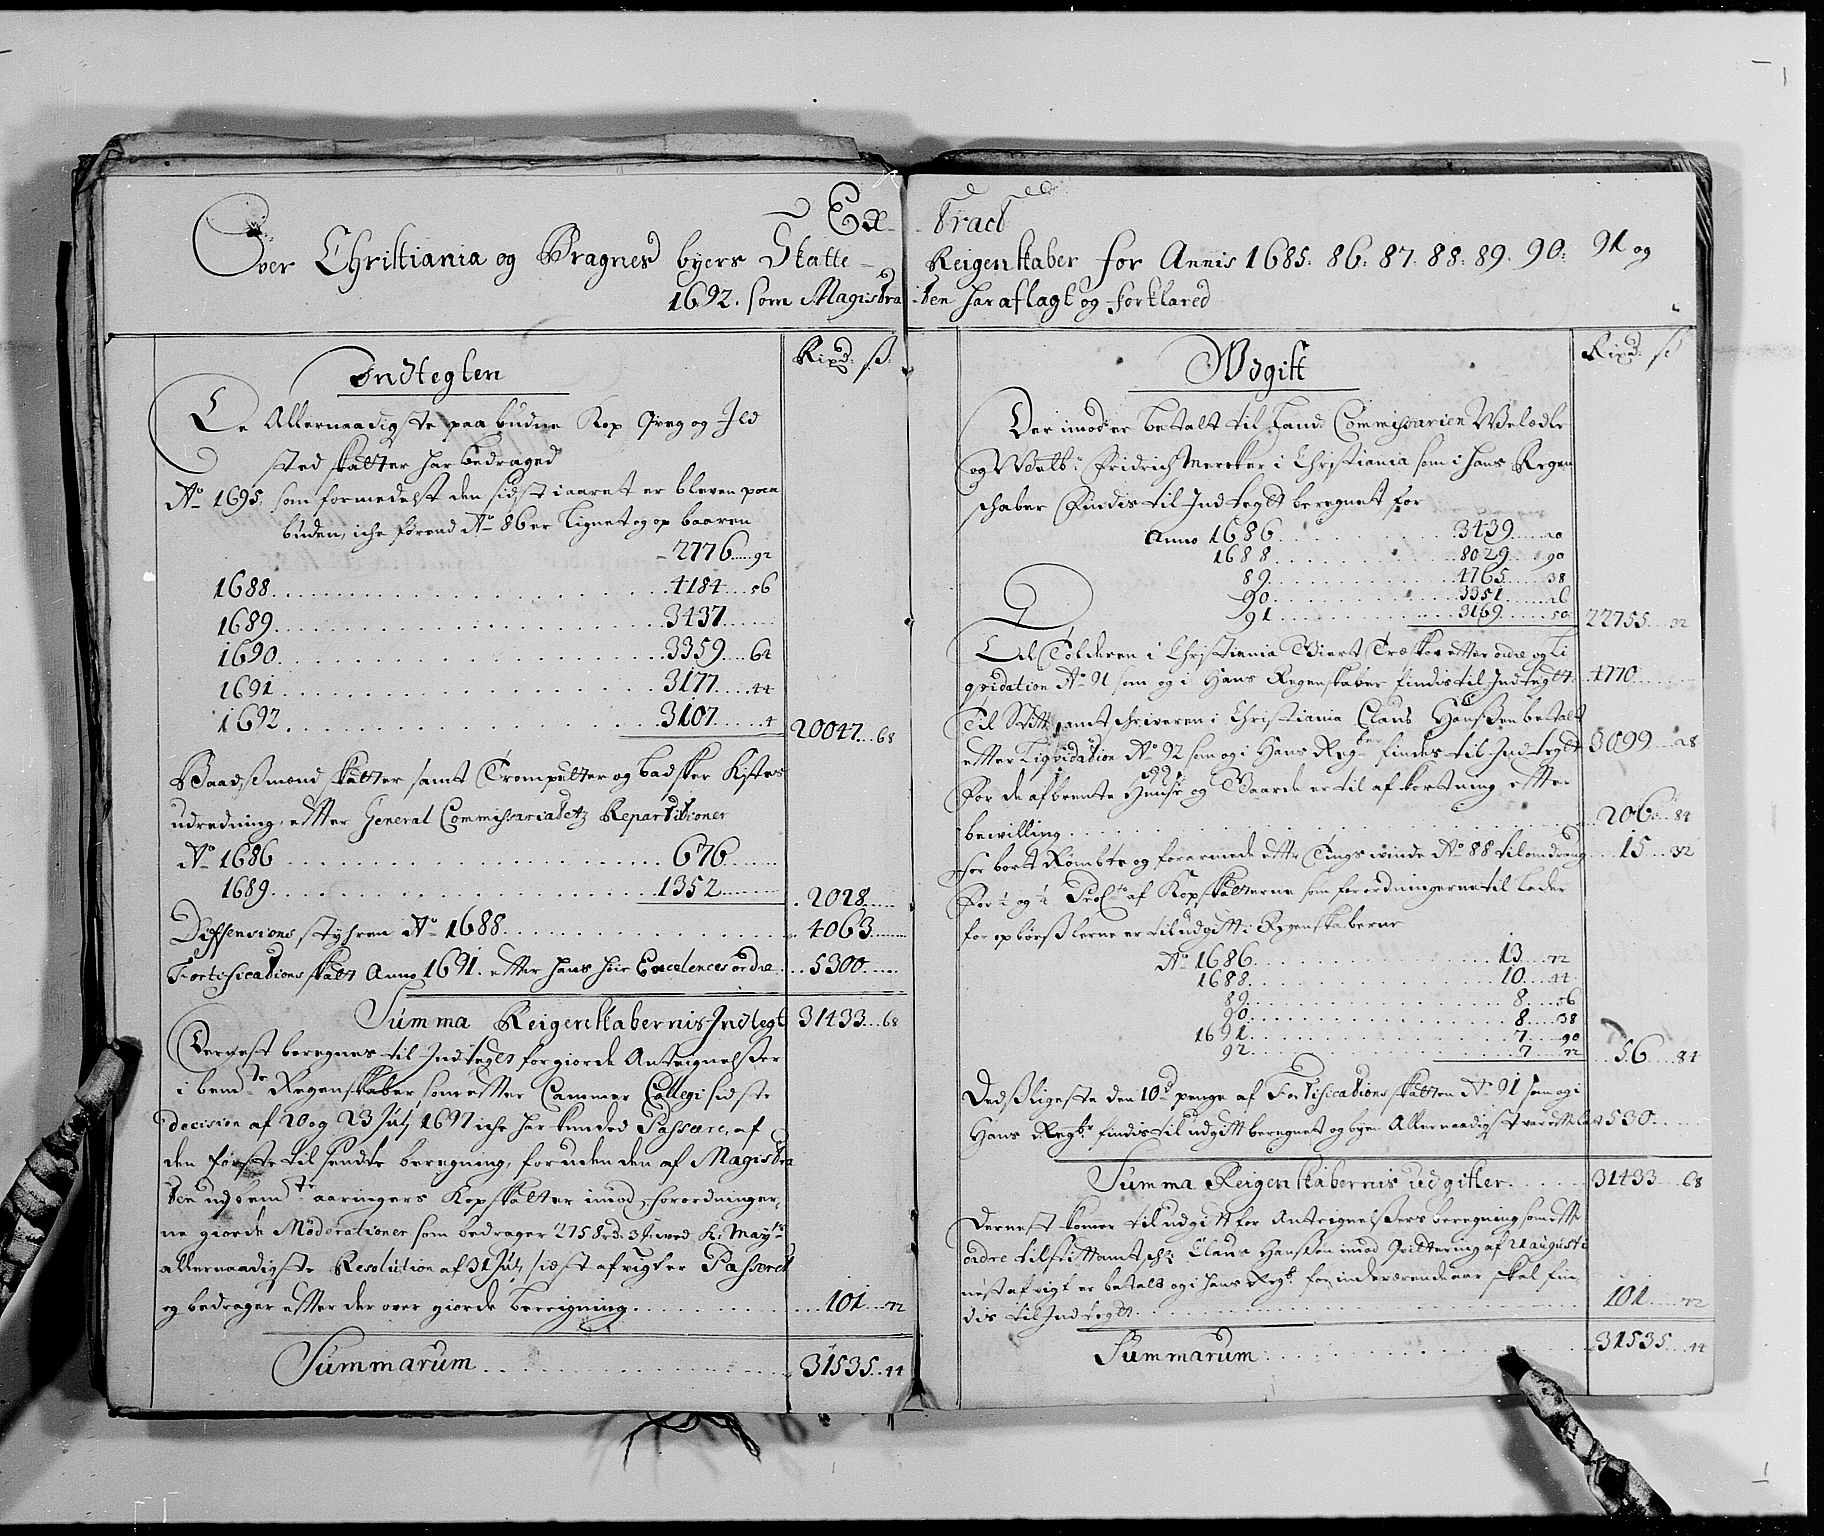 Ex Tract
Over Christiania og Bragnes byers Skatte Reigenskaber for Annis 1685. 86. 87. 88. 89. 90. 91 og
1692. som Magistraten har aflagt og forklared
Indtegten
Rixd: ß:
De Allernaadigste paabudne Kop Qveg og Ild
sted skatter har bedraged
Ao 1695. som formedelst den sidst i aaret er bleven paa
buden, iche förend Ao 86 er Lignet og op baaren
2776 92
1688 4184 56
1689 3437
1690 3359 64
1691 3177 44
1692 3107 4
20047 68
Baadsmænd skatter samt Trompetter og badsker Kisters
udredning, efter General Commissariatetz Repartitioner
Ao 1686 676
1689 1352
2028
Diffensions styhren Ao 1688 4063
Fortifications skatt Anno 1691. efter hans höie Excelences ordre 5300
Summa Reigenskabernis Indtegt 31433 68
Dernest beregnes til Indtegt forgiorde Antreignelsser
i bemte Regenskaber, som efter Cammer Collegi sidste
decision af 20 og 23 July 1697 iche har kunded Passere, af
den förste tilsendte beregning, foruden den af Magistra
ten udi bemte aaringers Kopskatter imod forordninger
ne giorde Moderationer som bedrager 2758 rd. 3 s. wed K: Mayts
allernaadigste Resolution af 31 July sidst afvigt er Passeret
og bedrager efter der over giorde bereigning 101 72
Summarum 31535 44
Udgift
Rixd: ß
Der imod er betalt til Land Commissarien Welædle
og Welb: Fridrich Mercker i Christiania som i hans Regen
schaber findis til Indtegt beregnet for
Anno 1686 3439 20
1688 8029 90
89 4765 38
90 3351 26
91 3169 50
22755 32
Til Tolderen i Christiania Biert Træskov efter ordre og Li
qvidation Ao 91 som og i Hans Regenskaber findis til Indtegt 4770
Til Stiftamtschriveren i Christiania Claus Hanssen betalt
efter Liqvidation Ao 92 som og i Hans Regker findes til Indtegt 3099 28
For de afbrente Huuse og Gaarde er til afkortning efter
bewilling 206 84
For bort Römbte og forarmede efter Tings winde Ao 88 15 32
For ½ og ¼ Procto af Kopskatterne som forordningerne til lader
for opbörsslerne er til udgift i Regenskaberne
Ao 1686 13 72
1688 10 44
89 8 56
90 8 38
1691 7 90
92 7 72
56 84
Dedssligeste den 10d penge af Fortificationsskatten Ao 91 som og i
Hans Regkr findis til udgift beregnet og byen Allernaadigst var efterladt 530
Summa Reigenskabernis udgifter 31433 68
Dernest komer til udgift for Antreignelssers beregning som efter
ordre til Stiftamtsch: Claus Hanssen imod Qvittering af 21 Augusti
nest afvigt er betalt og i hans Regk: for inde værende aar skal fin
dis til Indtegt 101 72
Summarum 31535 44